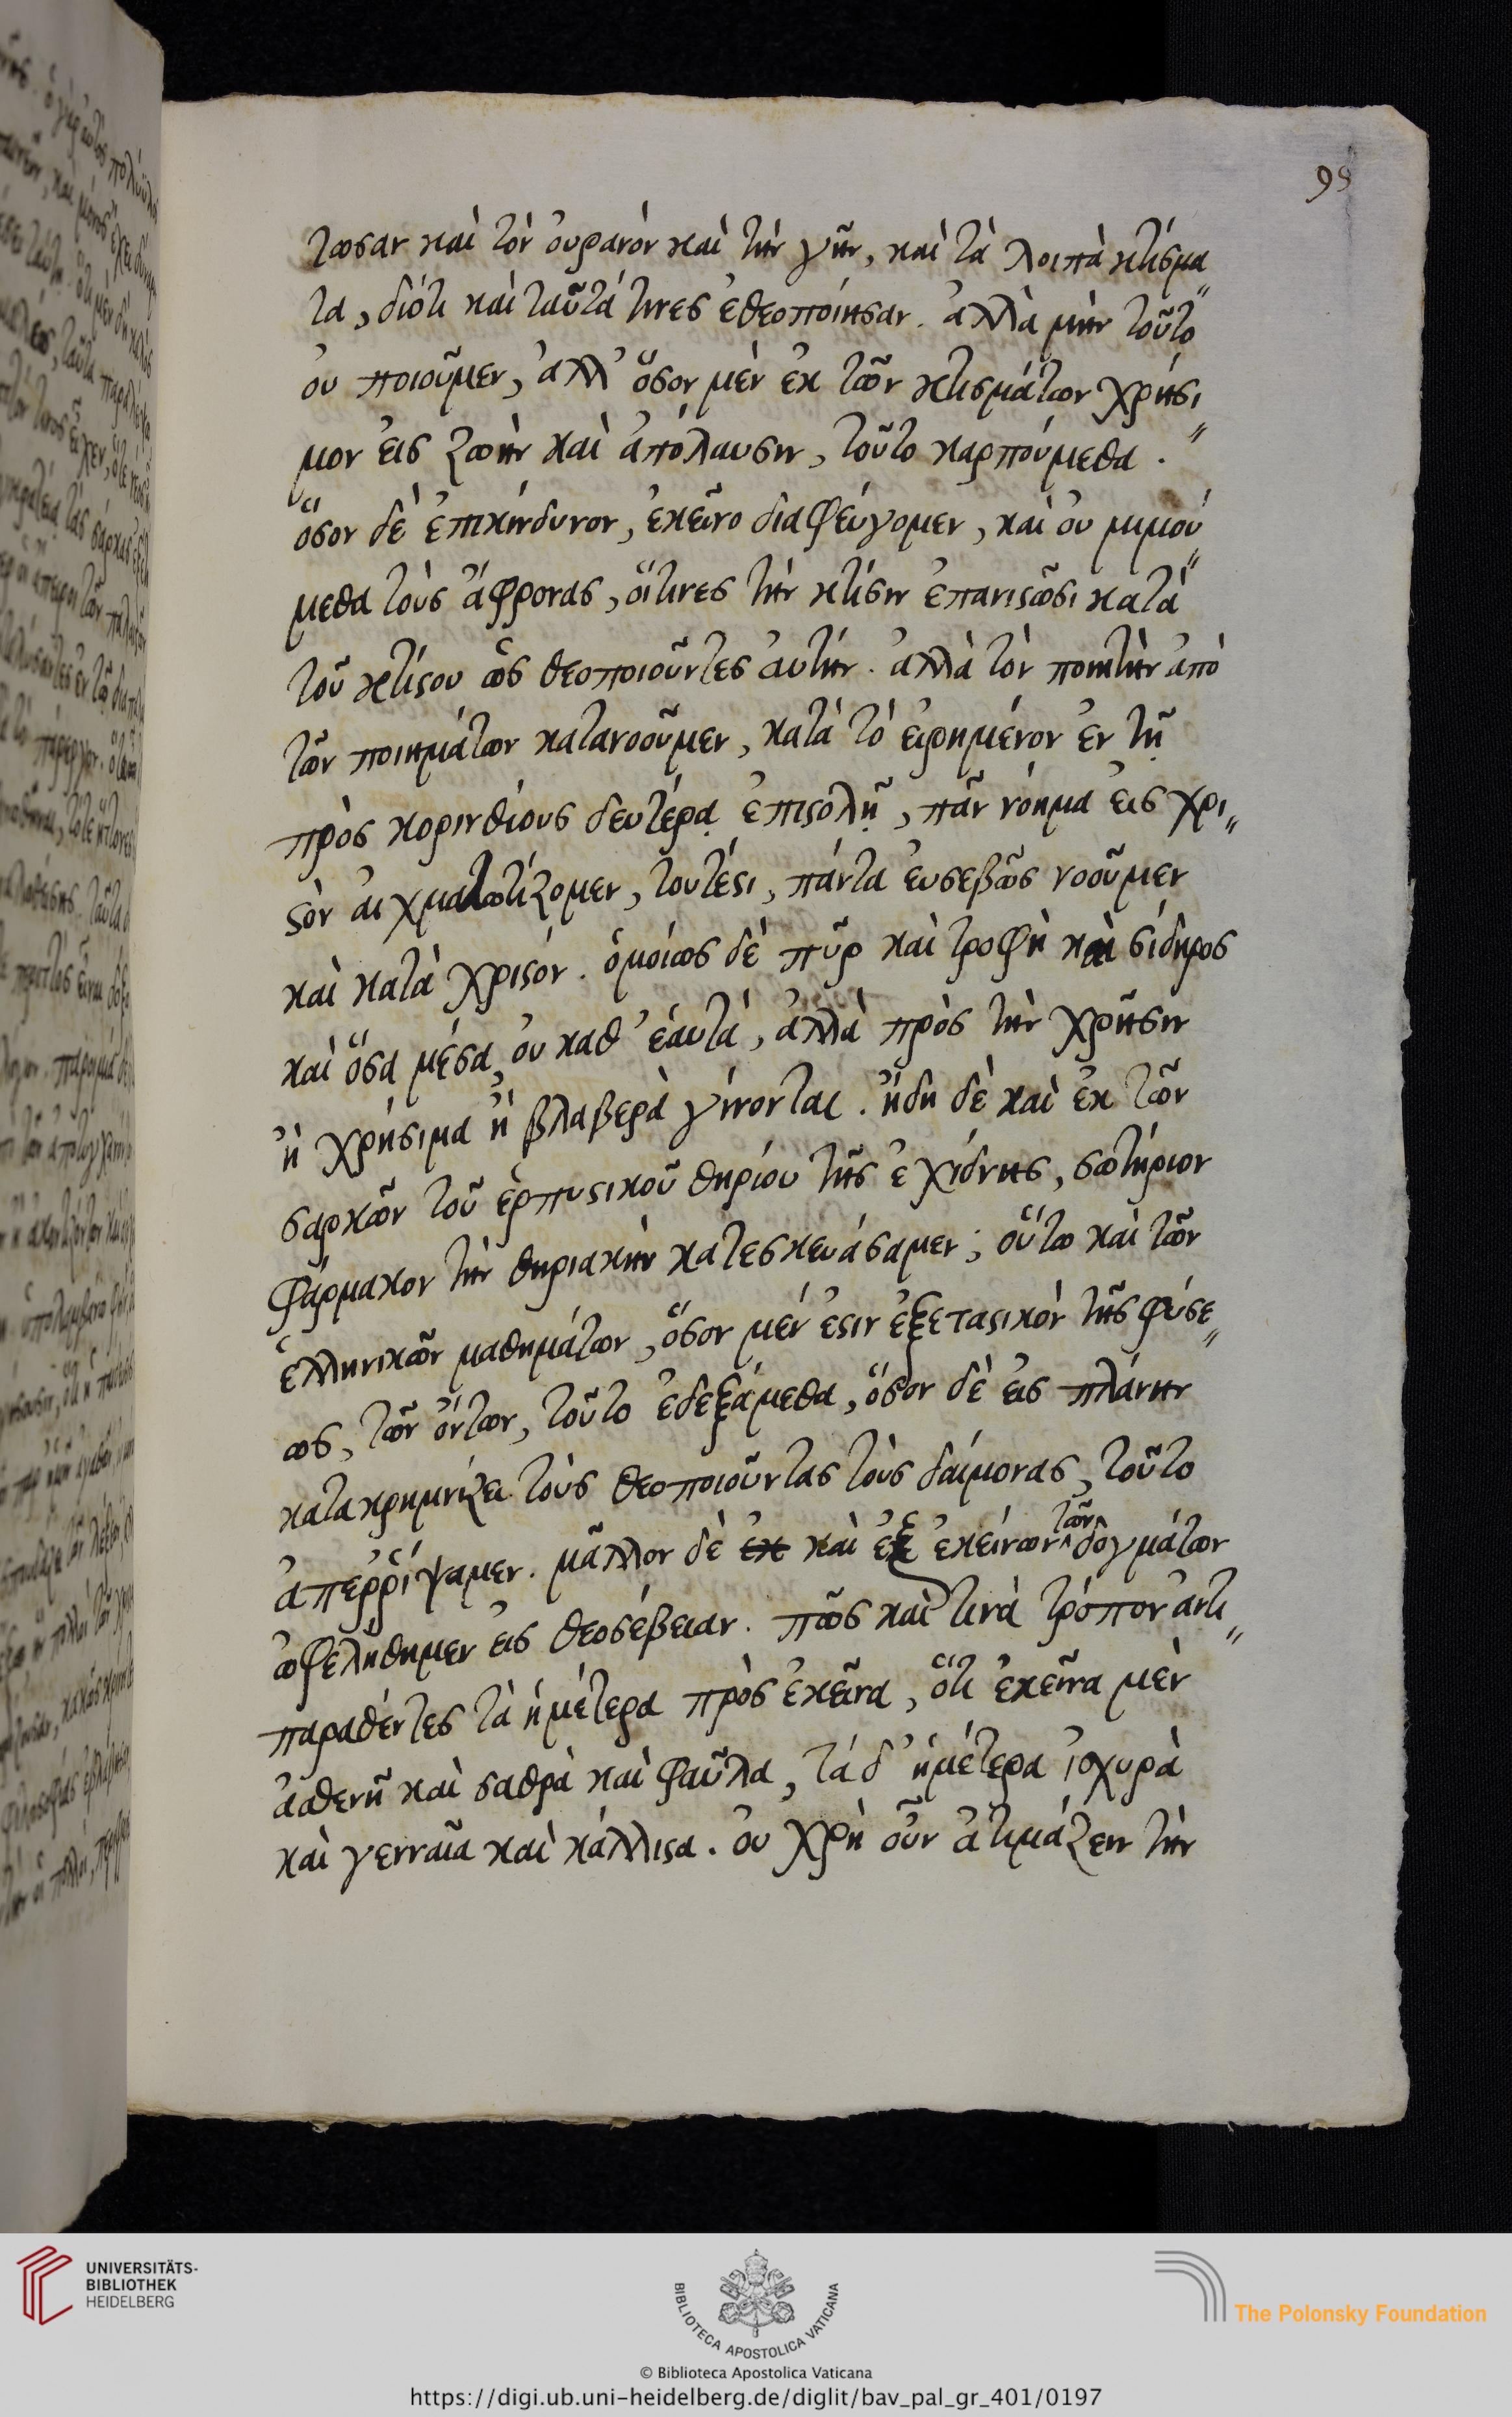 99
τωσαν καὶ τὸν ὀυρανὸν καὶ τὴν γῆν, καὶ τὰ λοιπὰ κτίσμα
τα, διότι καὶ ταῦτά τινες ἐθεοποίησαν. ἀλλὰ μὴν τοῦτο
ου ποιοῦμεν, ἀλλ' ὅσον μὲν ἐκ τῶν κτισμάτων χρήσι
μον ἐις ζωὴν καὶ ἀπόλαυσιν, τοῦτο καρπούμεθα.
ὅσον δὲ ἐπικίνδυνον, ἐκεῖνο διαφεύγομεν, καὶ ὀυ μιμού
μεθα τοὺς ἄφρονας, ὅιτινες τὴν κτίσιν ἐπανιϛῶσι κατὰ
τοῦ κτίϛου ὣς θεοποιοῦντες ἀυτήν. ἀλλὰ τὸν ποιητὴν ἀπὸ
τῶν ποιημάτων κατανοοῦμεν, κατὰ τὸ ἐιρημένον ἐν τῇ
πρὸς κορινθίους δευτέρᾳ ἐπιϛόλῇ, πᾶν νόημα ἐις χρι
ϛὸν ἀιχμαλωτίζομεν, τουτέϛι, πάντα ἐυσεβῶς νοοῦμεν
καὶ κατὰ χριϛόν. ὁμοίως δὲ πῦρ καὶ τροφὴ καὶ σίδηρος
καὶ ὅσα μέσα, ὀυ καθ' ἑαυτά, ἀλλὰ πρὸς τὴν χρῆσιν
ἢ χρήσιμα ἢ βλαβερὰ γίνονται. ἤδη δὲ καὶ ἐκ τῶν
σαρκῶν τοῦ ἑρπυϛικοῦ θηρίου τῆς ἐχίδνης, σωτήριον
φάρμακον τὴν θηριακὴν κατεσκευάσαμεν; ὅυτω καὶ τῶν
ἑλληνικῶν μαθημάτων, ὅσον μέν ἐϛιν ἐξεταϛικὸν τῆς φύσε
ως, τῶν ὄντων, τοῦτο ἐδεξάμεθα, ὅσον δὲ ἐις πλάνην
κατακρημνίζει τοὺς θεοποιοῦντας τοὺς δαίμονας, τοῦτο
ἀπεῤῥίψαμεν. μᾶλλον δὲ ἐκ καὶ ἐξ ἐκείνων τῶν δογμάτων
ὠφελήθημεν ἐις θεοσέβειαν. πῶς καὶ τινὰ τρόπον ἀντι
παραθέντες τὰ ἡμέτερα πρὸς ἐκεῖνα, ὅτι ἐκεῖνα μὲν
ἀσθενῆ καὶ σαθρὰ καὶ φαῦλα, τά δ' ἡμέτερα ἰσχυρὰ
καὶ γενναῖα καὶ κάλλιϛα. ὀυ χρὴ οὖν ἀτιμάζειν τὴν
UNIVERSITÄTS-
BIBLIOTHEK
HEIDELBERG
BIBLIOTECA APOSTOLICA VATICANA
The Polonsky Foundation
© Biblioteca Apostolica Vaticana
https://digi.ub.uni-heidelberg.de/diglit/bav_pal_gr_401/0197